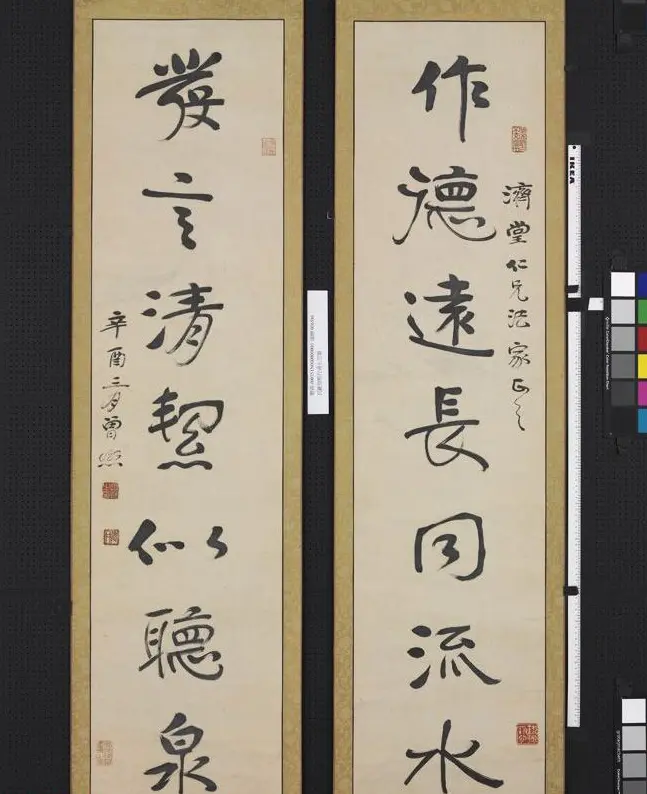 濟堂仁兄法家正之
作德遠長同流水
發言清絜似聽泉
辛酉三月曾熙
IKEA